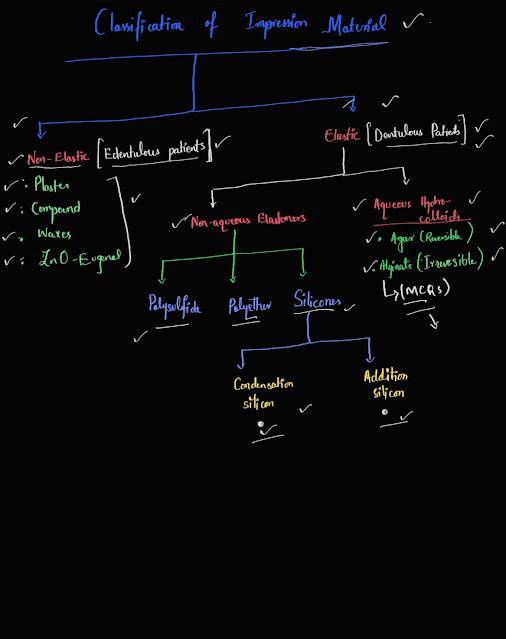 Classification of Impression Material
Non-Elastic [Edentulous patients]
: Plaster
: Compound
: Waxes
: ZnO-Eugenol
Elastic [Dentulous Patients]
Non-aqueous Elastomers
Aqueous Hydro-
colloids
Agar (Reversible)
Alginate (Irreversible)
(MCQs)
Polysulfide
Polyether
Silicones
Condensation
silicon
Addition
silicon